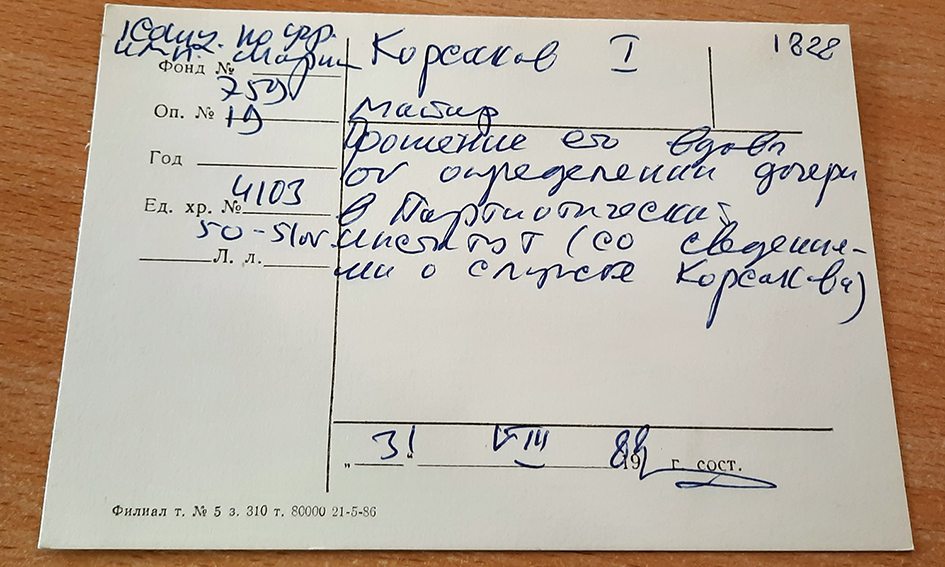 Канц. по учр.
имп. Марии
Фонд № 759
Оп. № 19
Год
Ед. хр. № 4103
50-51об.
Л. л.
Корсаков I
1828
майор
Прошение его вдовы
об определении дочери
в Патриотический
институт (со сведения-
ми о службе Корсакова)
„31“ VIII 1988 г. сост.
Филиал т. № 5 з. 310 т. 80000 21-5-86